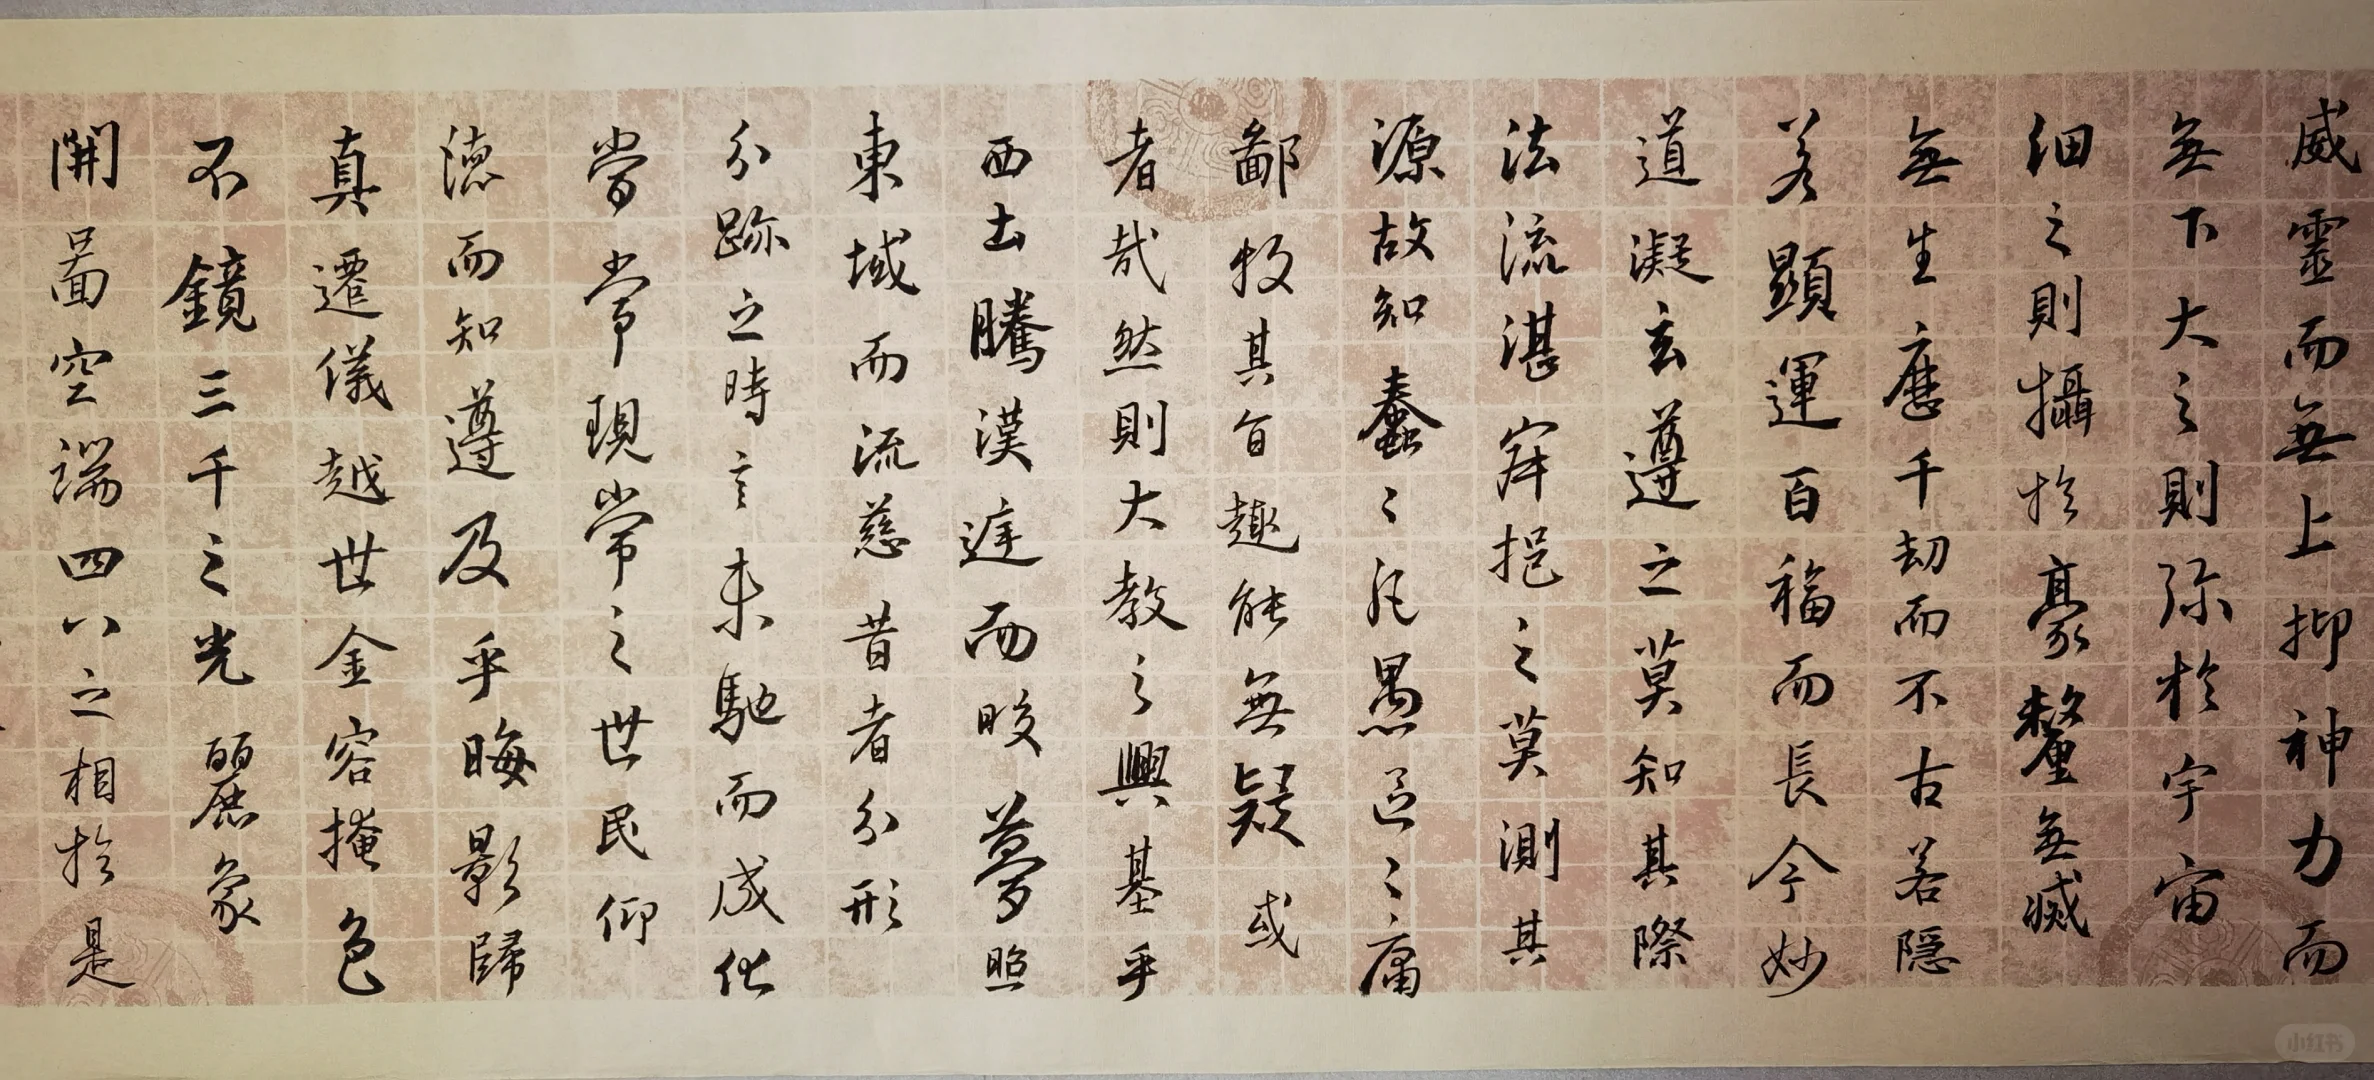 威靈而無上抑神力而
無下大之則弥於宇宙
細之則攝於豪釐無滅
無生歷千劫而不古若隱
若顯運百福而長今妙
道凝玄遵之莫知其際
法流湛寂挹之莫測其
源故知蠢〻凡愚區〻庸
鄙投其旨趣能無疑或
者哉然則大教之興基乎
西土騰漢庭而皎夢照
東域而流慈昔者分形
分跡之時言未馳而成化
當常現常之世民仰
德而知遵及乎晦影歸
真遷儀越世金容掩色
不鏡三千之光麗象
開圖空端四八之相於是
小红书